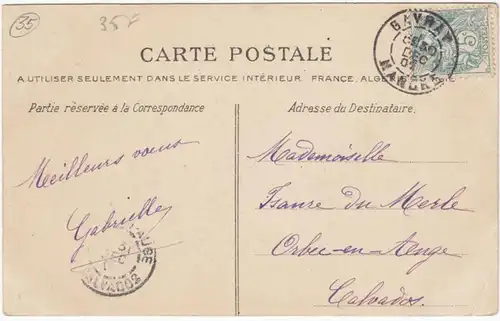 35
35F
CARTE POSTALE
A UTILISER SEULEMENT DANS LE SERVICE INTÉRIEUR. FRANCE, ALGÉ
Partie réservée à la Correspondance
Adresse du Destinataire.
GAVRAY
MANCHE
Meilleurs voeux
Gabrielle
Mademoiselle
Isaure du Merle
Orbec-en-Auge
Calvados.
AUGE
CALVADOS